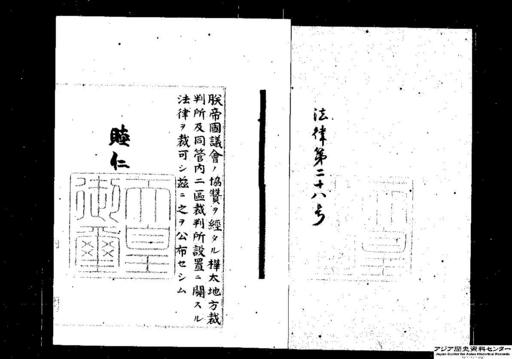 法律第二十八号
朕帝國議會ノ協賛ヲ經タル樺太地方裁
判所及同管内ニ區裁判所設置ニ關スル
法律ヲ裁可シ茲ニ之ヲ公布セシム
睦仁
天皇
御璽
アジア歴史資料センター
Japan Center for Asian Historical Records